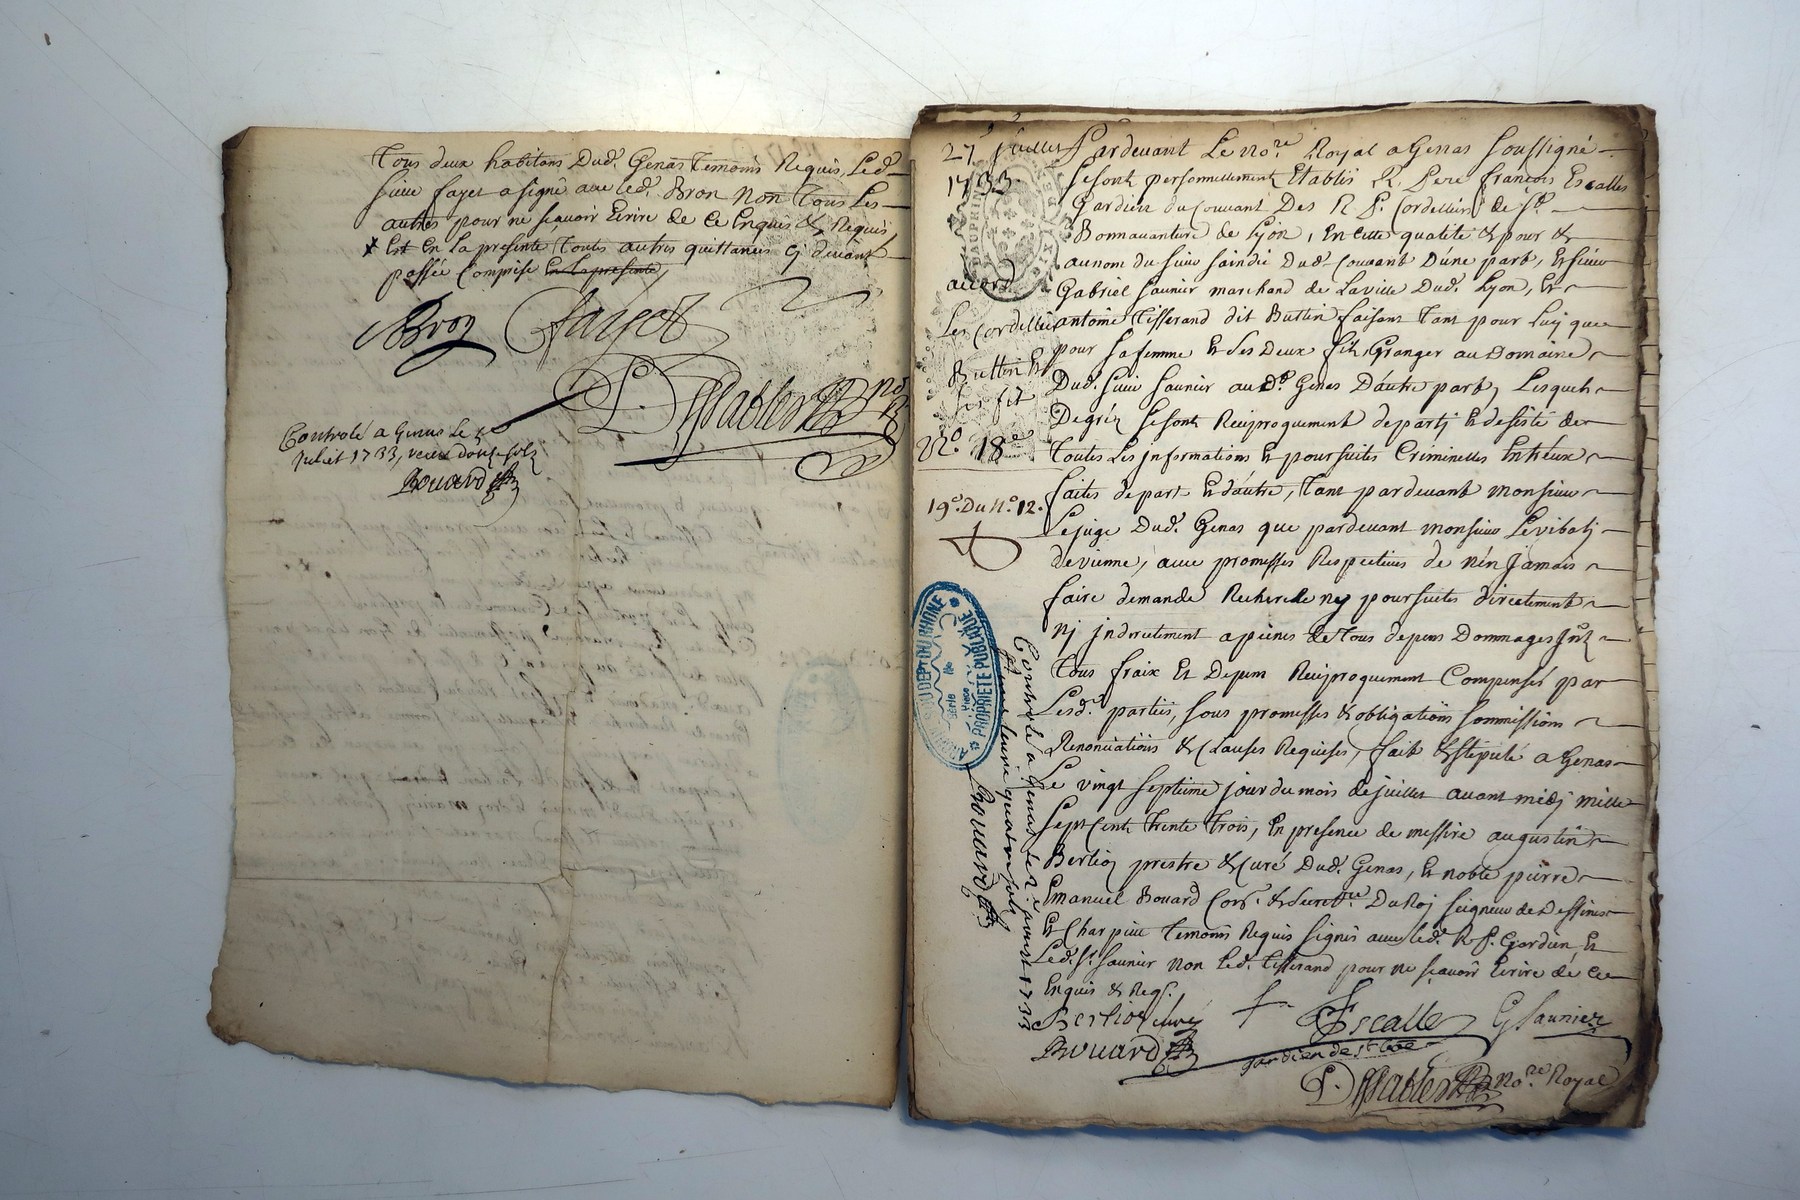 Tous deux habitans Dud. Genas Temoins Requis, Led.
sieur fayet a signé avec led. Bron Non Tous Les
autres pour ne sçavoir Ecrire de ce Enquis & Requis
* Est En La presente Toutes autres quittances cj devant
passée comprise En La presente,
Bron
Dessables No
Controlé a Genas Le
Juliet 1733, receu douze sols
Bouard
27 juillet
1733
accord
Les Cordeliers
Buttin Et
N.º 18e
19e. Du N.º 12.
Pardevant Le No.re Royal a Genas soussigné
se sont personnellement Etablis R. Pere françois Escalles
Gardien du couvant Des R. P. Cordelliers de St.
Bonnavanture de Lyon, En cette qualité & pour &
au nom du sieur saindic Dud. Couvant Dune part, Et sieur
Gabriel saunier marchand de La ville Dud. Lyon, Et
antoine Tisserand dit Buttin faisant Tant pour Luy que
pour sa femme Et ses Deux fils, Granger au Domaine
Dud. sieur saunier aud. Genas D'autre part, Lesquels
De gréz se sont Reciproquement departj Et desisté de
Toutes Les jnformations Et poursuites Criminelles Entreux
faites de part Et d'autre, Tant pardevant monsieur
Le juge Dud. Genas que pardevant monsieur Le vibalj
de vienne, avec promesses Respectives de n'en Jamais
faire demande Recherche ny poursuites directement
nj jndirectement a peines de Tous depens Dommages
Tous fraix Et Depens Reciproquement Compensés par
Lesd. parties, sous promesses & obligations sommissions
Renonciations & Clauses Requises, fait & stipulé a Genas
Le vingt septieme jour du mois de juillet avant midj mille
sept Cents Trente Trois, En presence de messire augustin
Berlioz prestre & Curé Dud. Genas, Et noble pierre
Emanuel Bouard Con.r & secret.re Du Roj seigneur de Dessines
Et Charpieu Temoins Requis signés avec led. R. P. Gardien Et
Led. sr. saunier non Led. Tisserand pour ne sçavoir Ecrire de ce
Enquis & Req.
Berlioz curé
fr. Escalle
gardien de st
G Saunier
Bouard
Dessables No.re Royal
Controlé a Genas
1733
Bouard
PROPRIÉTÉ PUBLIQUE